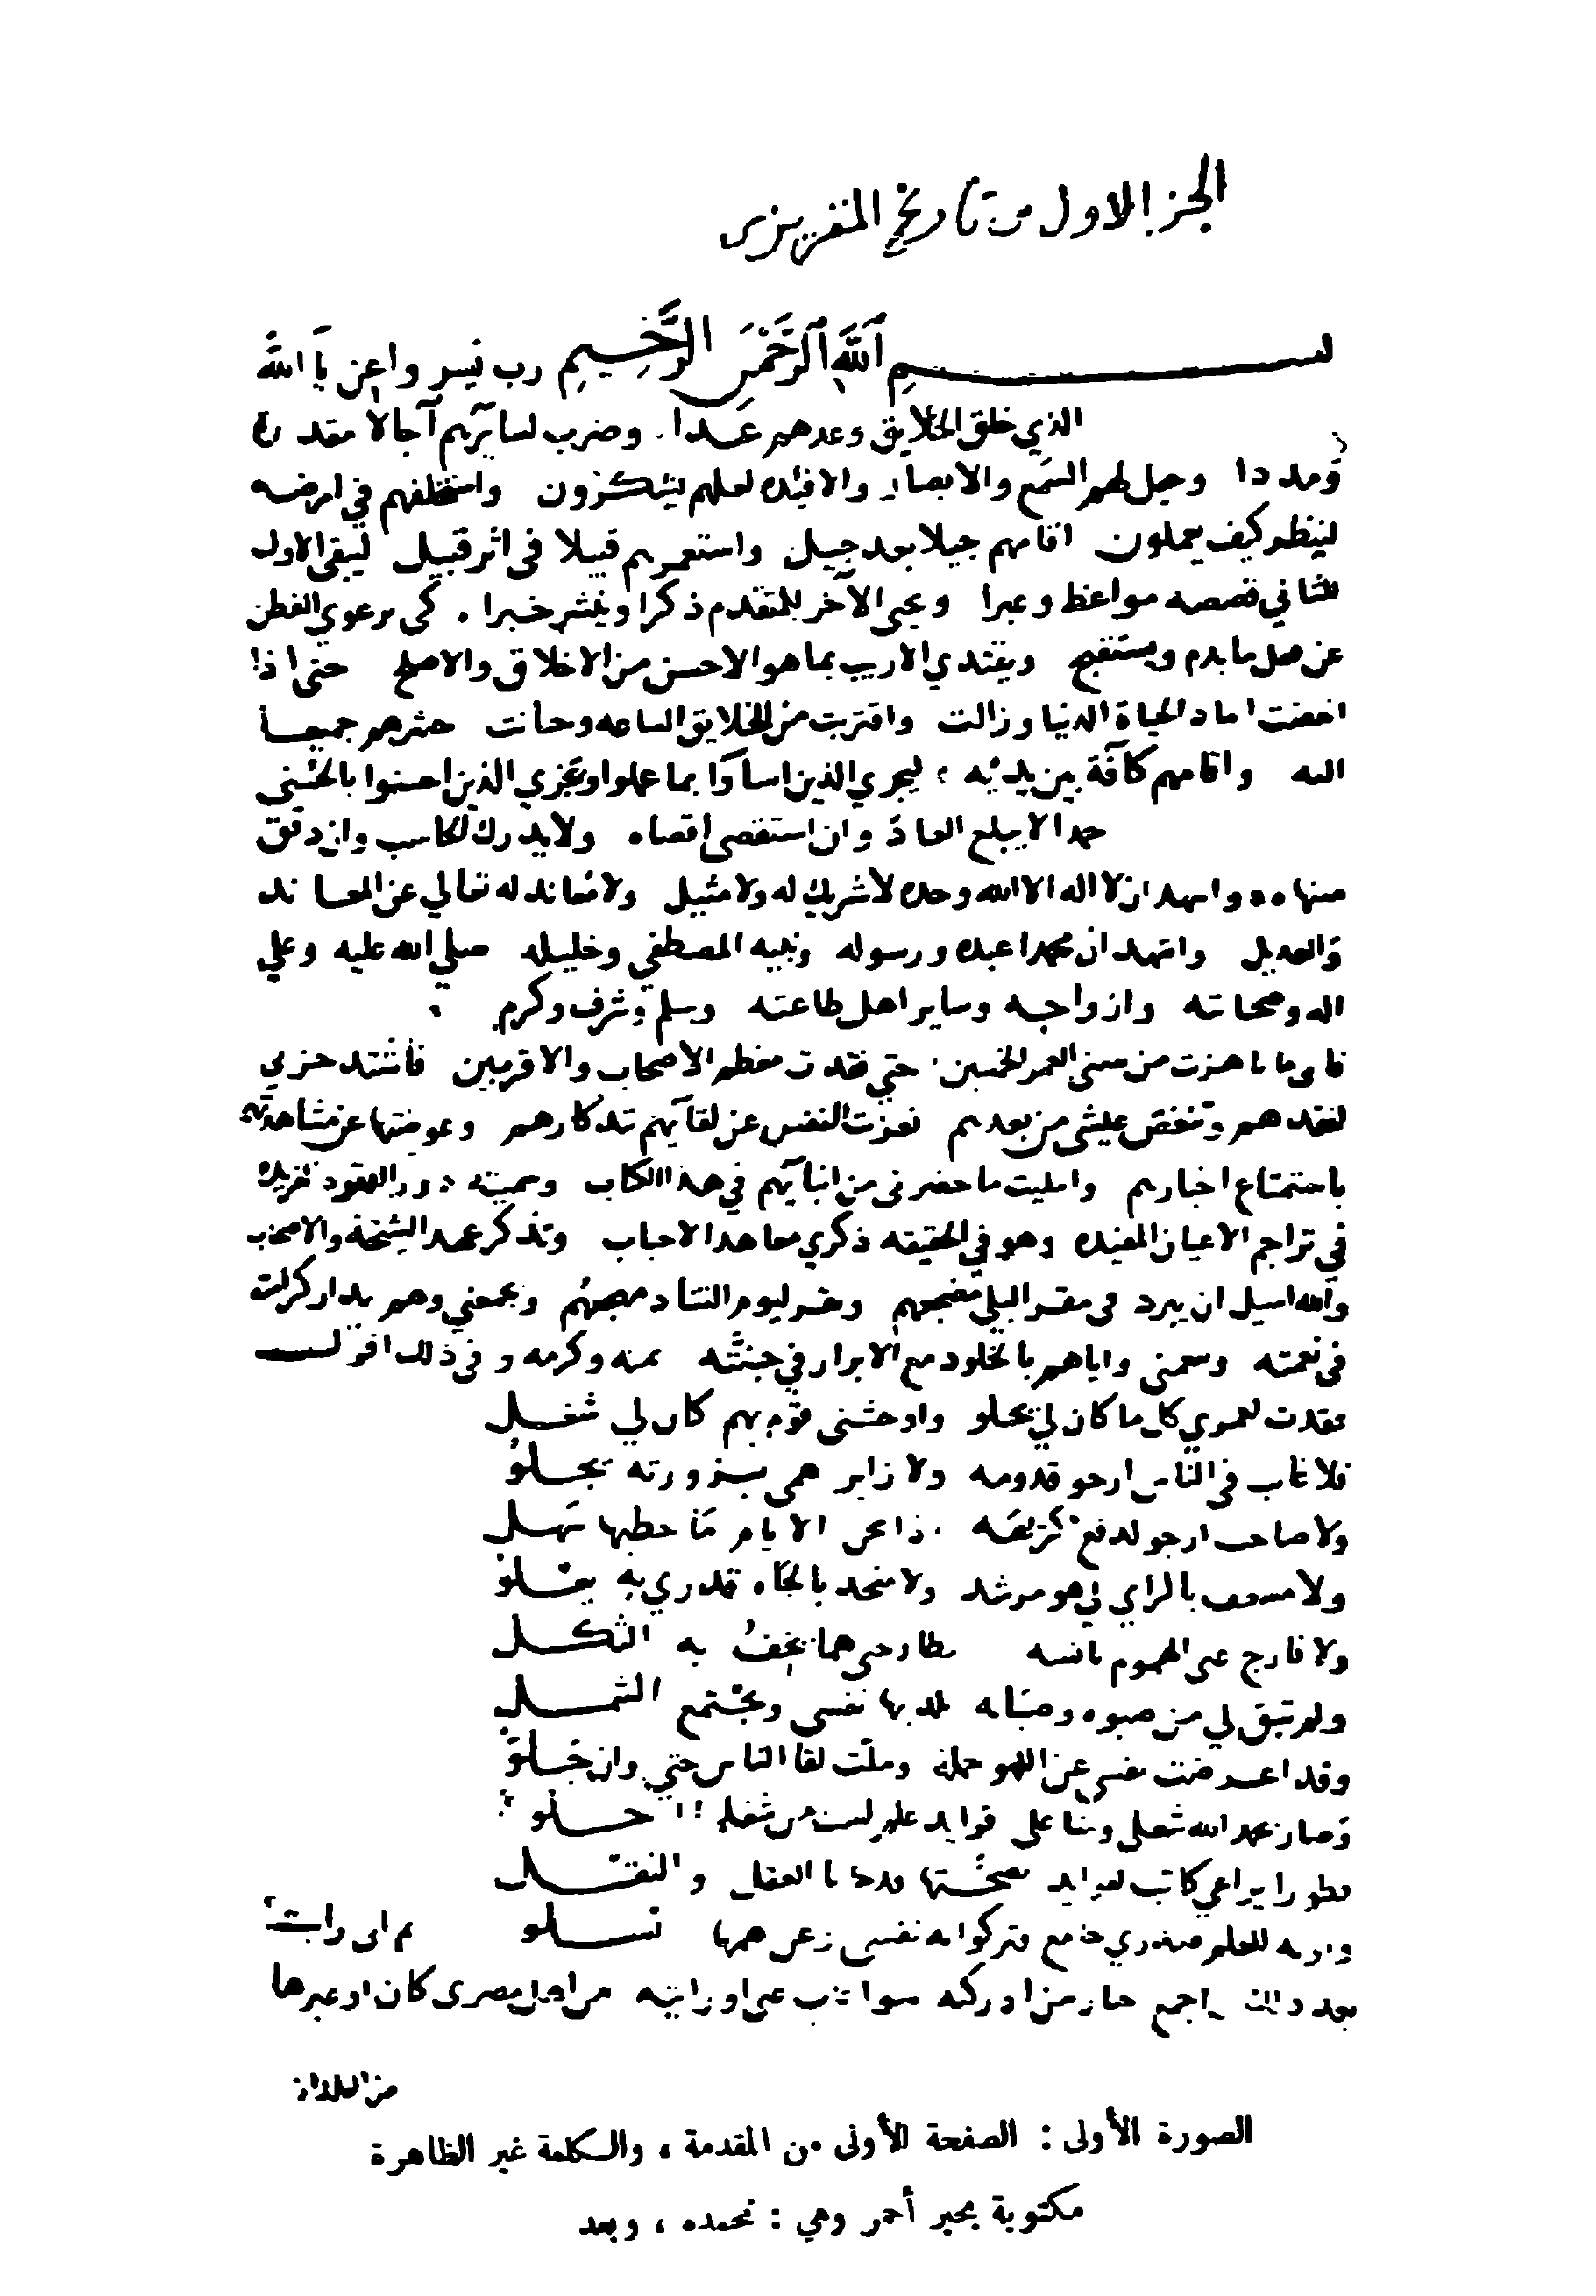 الجز الاول من تاريخ المقريزي
بسم الله الرحمن الرحيم رب يسر واعن يا الله
الذي خلق الخلايق وعدهم عددا. وضرب لسايرهم آجالا مقدرة
ومددا وجعل لهم السمع والابصار والافئده لعلهم يشكرون واستخلفهم في ارضه
لينظر كيف يعملون اقامهم جيلا بعد جيل واستعمرهم قبيلا في اثر قبيل ليبقى الاول
للثاني قصصه مواعظا وعبرا ويحي الآخر للمتقدم ذكرا وينشر خبرا . كي يرعوي الفطن
عن فعل ما يذم ويستقبح ويقتدي الاريب بما هو الاحسن من الاخلاق والاصلح حتى اذا
انقضت اماد الحياة الدنيا وزالت واقتربت من الخلايق الساعه وحانت حشرهم جميعا
اليه واقامهم كآفة بين يديه ؛ ليجزي الذين اسآوا بما عملوا ويجزي الذين احسنوا بالحسنى
حمدا لا يبلغ العاد وان استقصى اقصاه ولا يدرك الحاسب وان دقق
منتهاه واشهد ان لا اله الا الله وحده لا شريك له ولا مثيل ولا معاند له تعالي عن المعاند
والعديل واشهد ان محمدا عبده ورسوله ونبيه المصطفي وخليله صلي الله عليه وعلي
اله وصحابته وازواجه وساير اهل طاعته وسلم وشرف وكرم
فاني ما ناهزت من سني العمر الخمسين حتي فقدت معظم الاصحاب والاقربين فاشتد حزني
لفقدهم وتنغص عيشي من بعدهم فعزيت النفس عن لقآيهم بتذكارهم وعوضتها عن مشاهدتهم
باستمتاع اخبارهم وامليت ما حضرني من انبآيهم في هذا الكتاب وسميته درر العقود الفريده
في تراجم الاعيان المفيده وهو في الحقيقه ذكري معاهد الاحباب وتذكر عهد المشيخة والاصحاب
والله اسيل ان يبرد في مقر البلي مضجعهم وخير ليوم التناد مهجعهم ويجمعني وهم بدار كرامته
في نعمته ويمتعني واياهم بالخلود مع الابرار في جنته بمنه وكرمه وفي ذلك اقول
فقدت لعمري كل ما كان لي يحلو واوحشني قوم بهم كان لي شغل
فلا غايب في الناس ارجو قدومه ولا زاير همي بزورته يجلو
ولا صاحب ارجو لدفع كريهة اذا عن الايام ما خطبها سهل
ولا مسعف بالراي لي هو مرشد ولا منجد بالجاه قدري به يعلو
ولا فارج عني الهموم بانسه يطارحني هما يخف به الثكل
ولم تبق لي من صبوه وصبابه تلذ بها نفسي ويجتمع الشمل
وقد اعرضت نفسي عن اللهو جملة وملت لقا الناس حتي وان جلو
وصار بحمد الله شغلي وشاغلي فوايد علم لست من شغلها اخلو
فطورا يراعي كاتب لفوايد بصحتها قد جانا العقل والنقل
وانه للعلم صدري جامع فتركو به نفسي وعن همها تسلو ثم اني رايت
بعد ذلك اجمع اخبار من ادركته سوا غاب عني او رايته من اهل مصر كان او غيرها
من البلدان
الصورة الأولى : الصفحة الأولى من المقدمة ، والكلمة غير الظاهرة
مكتوبة بحبر أحمر وهي : نحمده ، وبعد